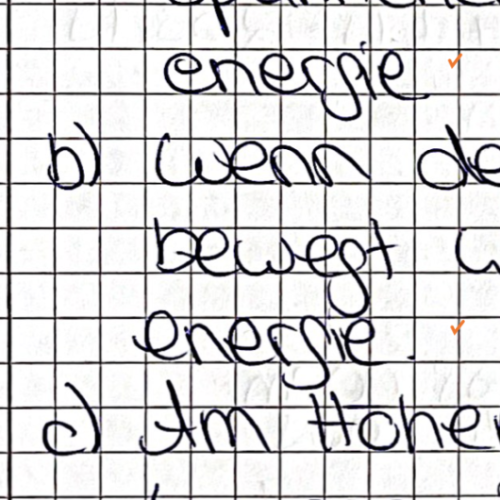 energie
b) wenn de
bewegt
energie.
c) Am Höhe